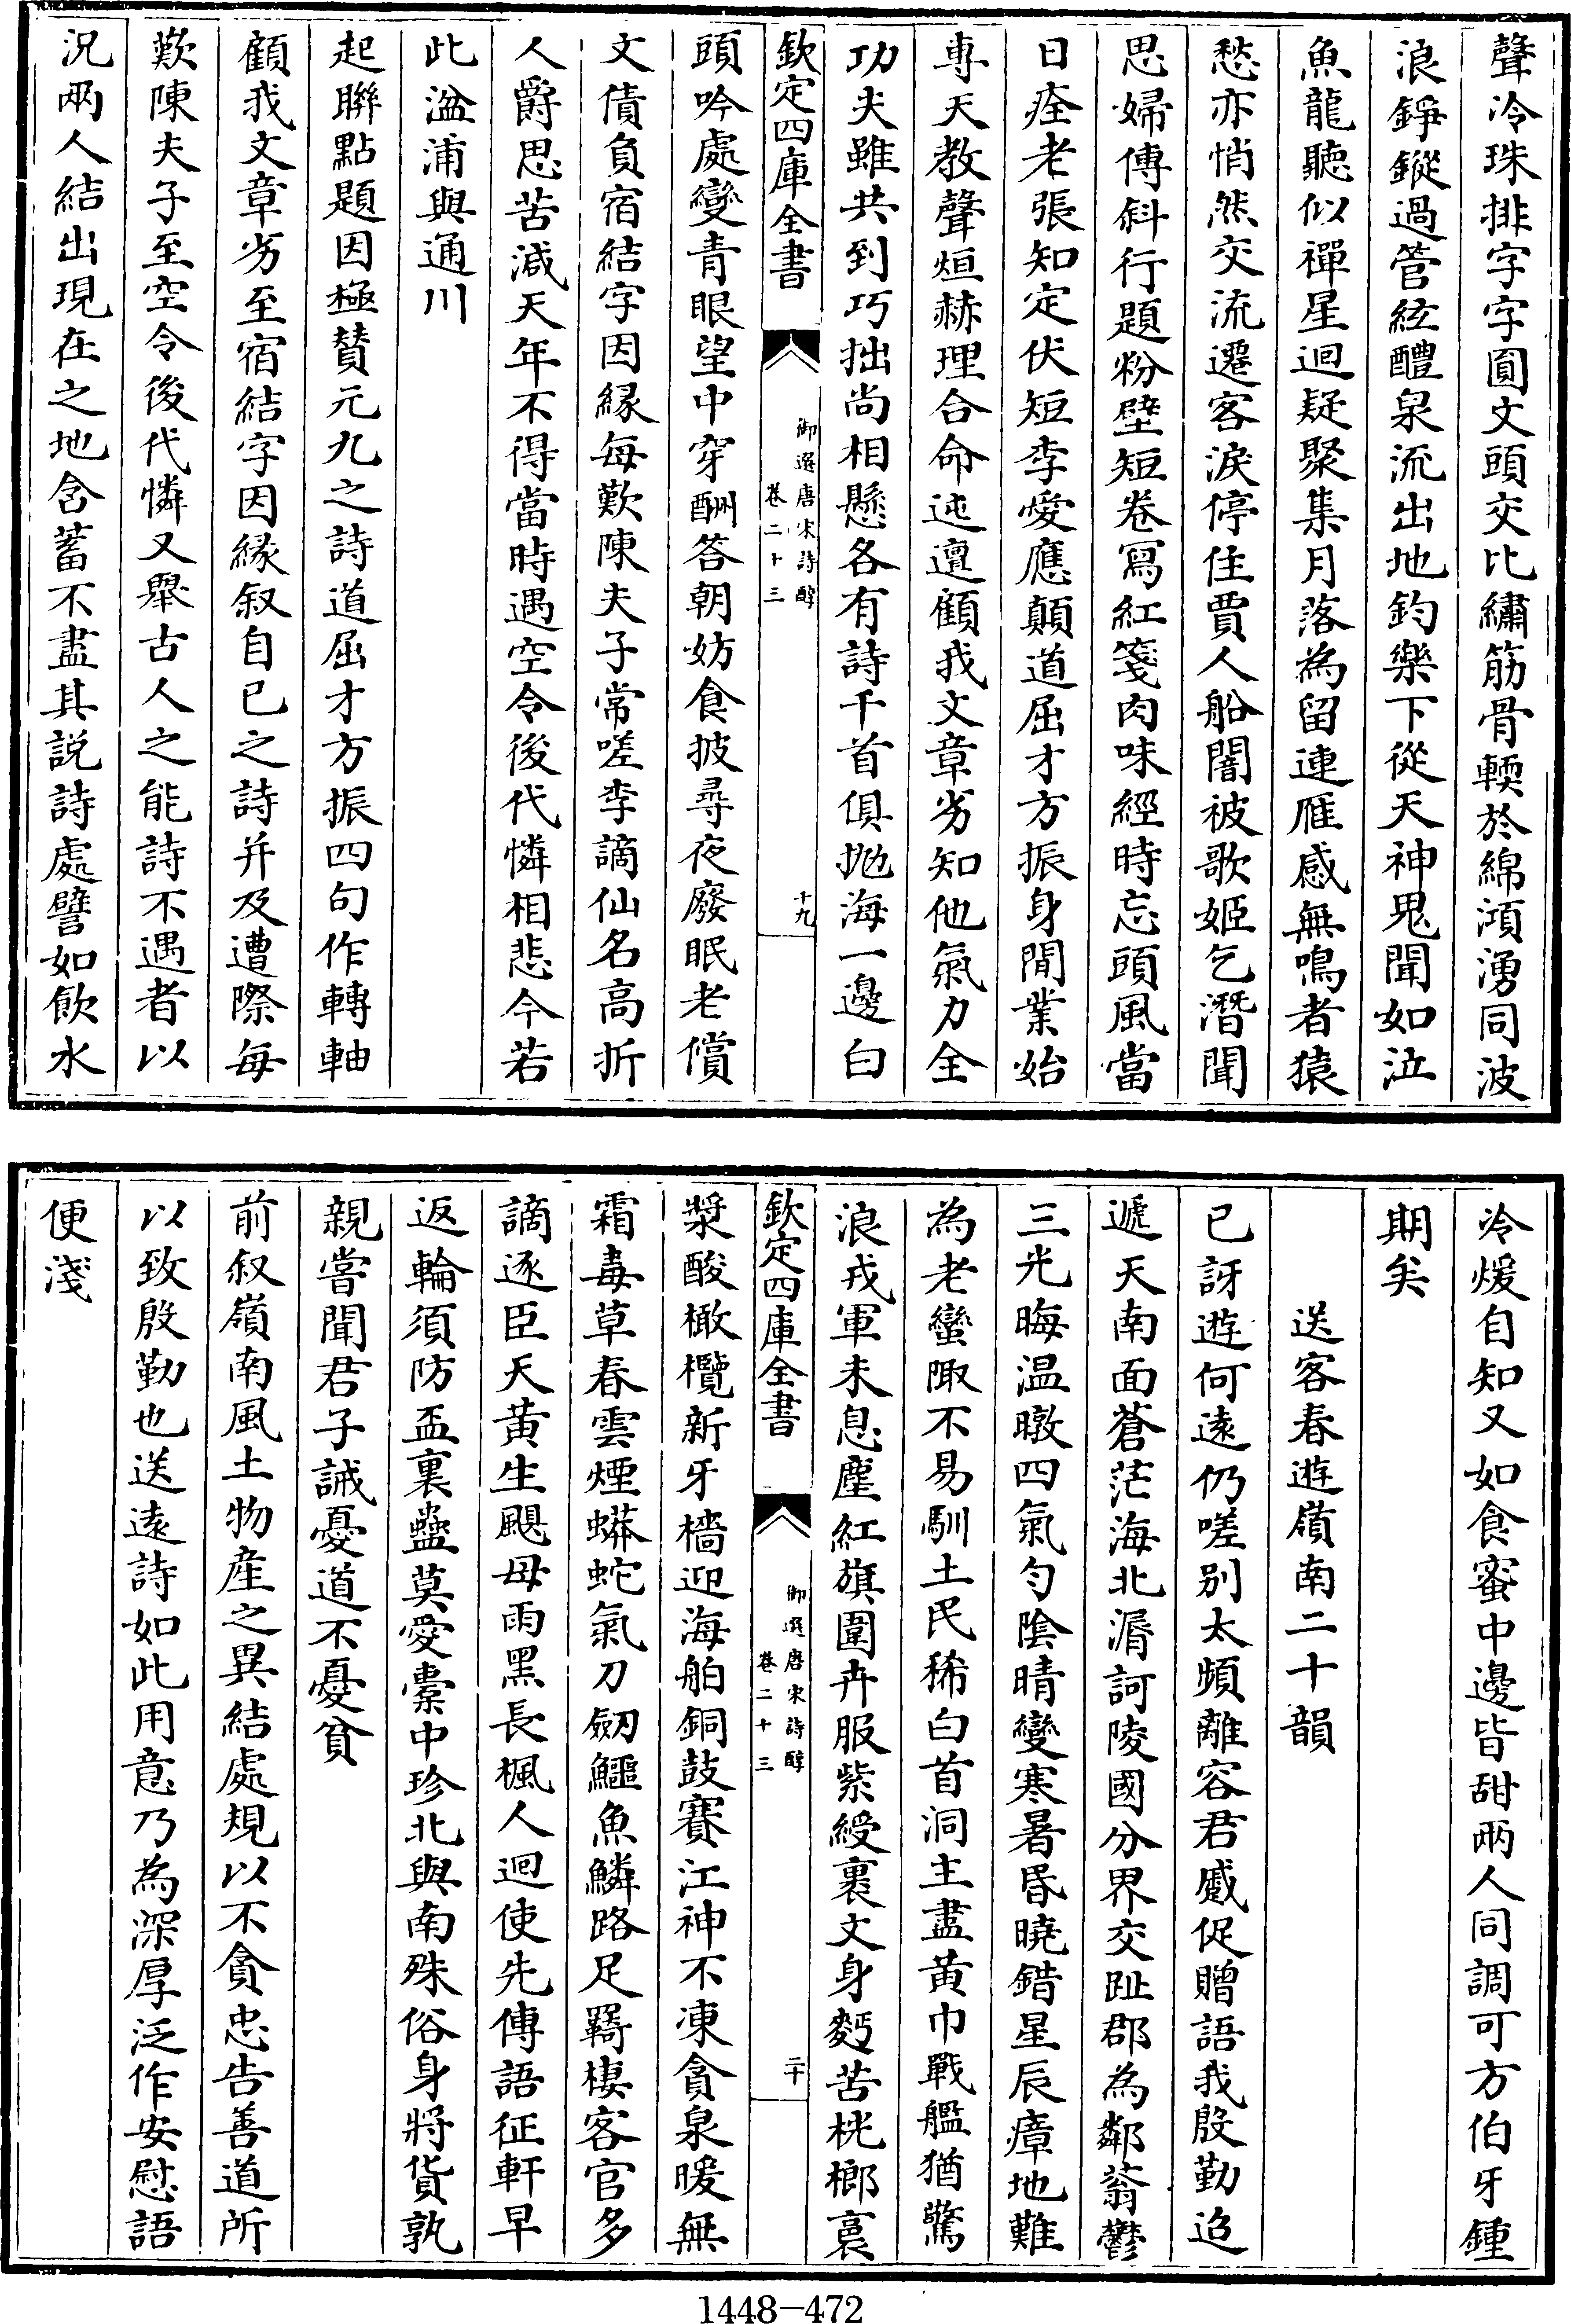 聲冷珠排字字圓文頭交比繡筋骨輭於綿澒湧同波
浪錚鏦過管絃醴泉流出地鈞樂下從天神鬼聞如泣
魚龍聽似禪星迴疑聚集月落為留連雁感無鳴者猿
愁亦悄然交流遷客淚停住賈人船闇被歌姬乞潛聞
思婦傳斜行題粉壁短卷寫紅箋肉味經時忘頭風當
日痊老張知定伏短李愛應顛道屈才方振身閒業始
專天教聲烜赫理合命迍邅顧我文章劣知他氣力全
功夫雖共到巧拙尚相懸各有詩千首俱拋海一邊白
欽定四庫全書
御選唐宋詩醇
卷二十三
十九
頭吟處變青眼望中穿酬答朝妨食披尋夜廢眠老償
文債負宿結字因緣每歎陳夫子常嗟李謫仙名高折
人爵思苦減天年不得當時遇空令後代憐相悲今若
此湓浦與通川
起聯點題因極贊元九之詩道屈才方振四句作轉軸
顧我文章劣至宿結字因緣叙自已之詩并及遭際每
歎陳夫子至空令後代憐又舉古人之能詩不遇者以
況兩人結出現在之地含蓄不盡其説詩處譬如飲水
冷煖自知又如食蜜中邊皆甜兩人同調可方伯牙鍾
期矣
送客春遊嶺南二十韻
已訝遊何遠仍嗟别太頻離容君蹙促贈語我殷勤迢
遞天南面蒼茫海北漘訶陵國分界交趾郡為鄰蓊鬱
三光晦温暾四氣勻陰晴變寒暑昏曉錯星辰瘴地難
為老蠻陬不易馴土民稀白首洞主盡黄巾戰艦猶驚
浪戎軍未息塵紅旗圍卉服紫綬裹文身麫苦桄榔裛
漿酸橄欖新牙檣迎海舶銅鼓賽江神不凍貪泉暖無
霜毒草春雲煙蟒蛇氣刀劒鱷魚鱗路足羈棲客官多
謫逐臣天黄生颶母雨黑長楓人迴使先傳語征軒早
返輪須防盃裏蠱莫愛槖中珍北與南殊俗身將貨孰
親嘗聞君子誡憂道不憂貧
欽定四庫全書
御選唐宋詩醇
卷二十三
二十
前叙嶺南風土物産之異結處規以不貪忠告善道所
以致殷勤也送遠詩如此用意乃為深厚泛作安慰語
便淺
1448-472